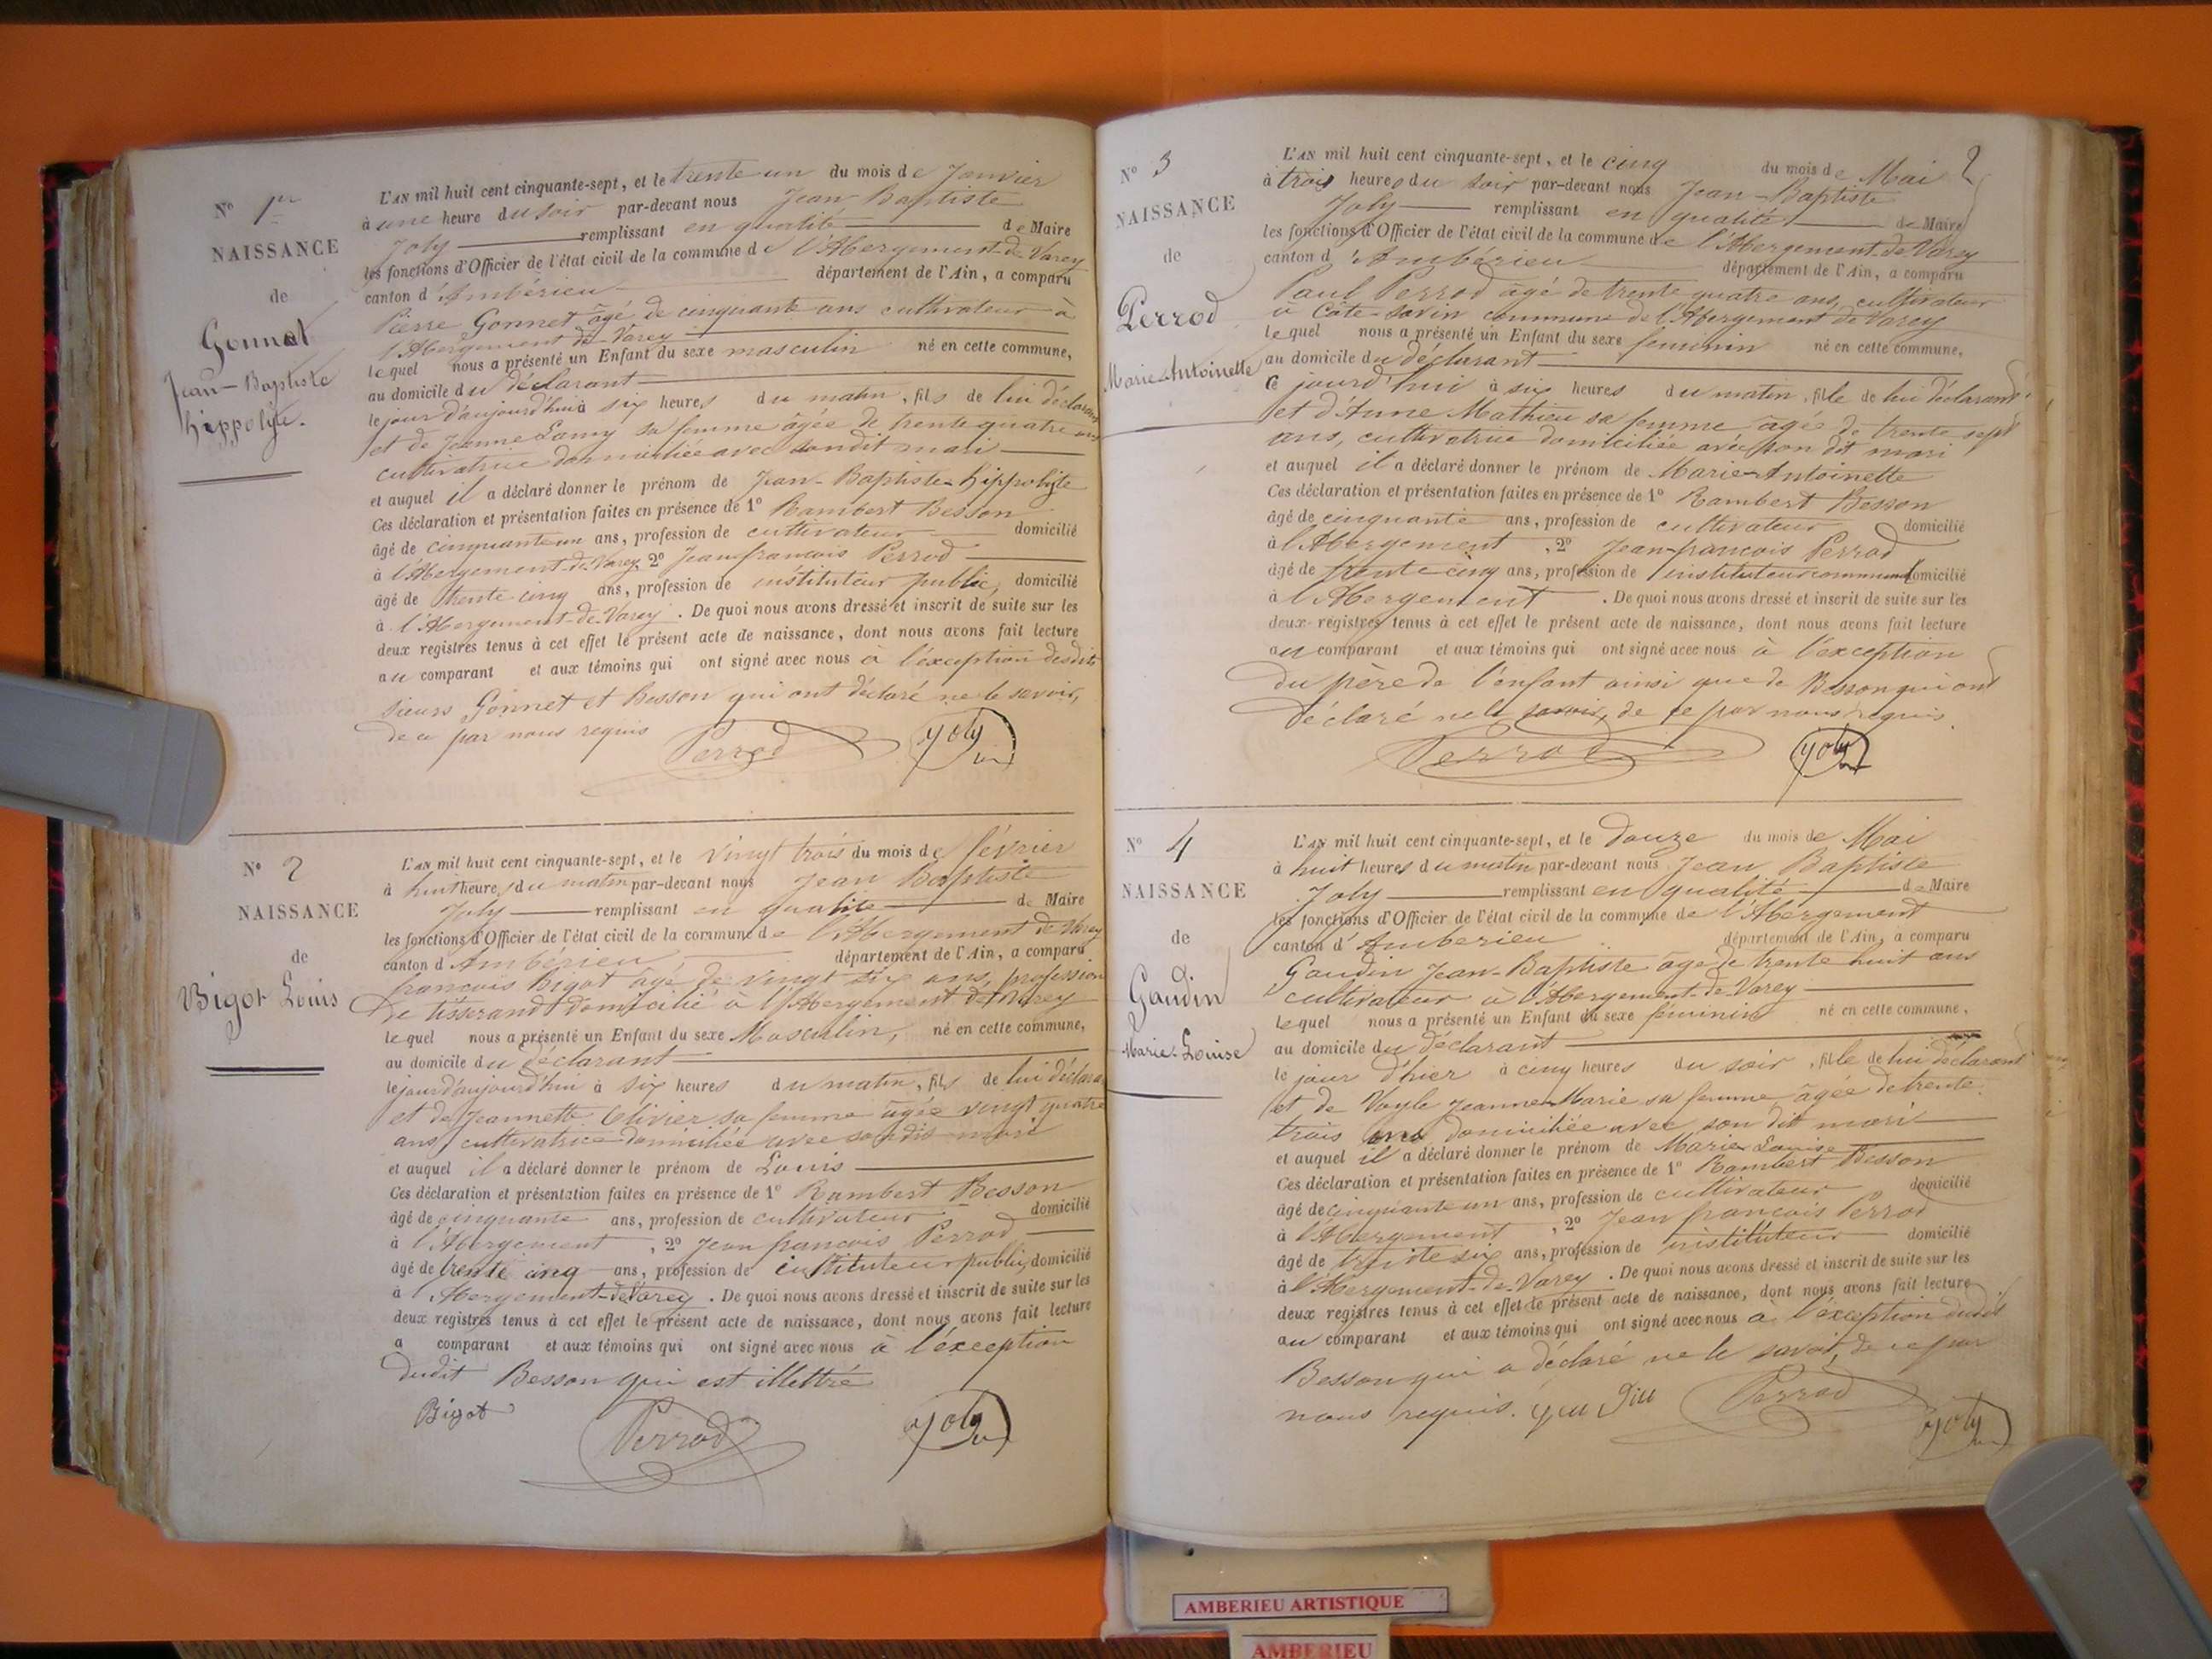 N° 1er
NAISSANCE
de
Gonnet
Jean-Baptiste
hippolyte.
L'AN mil huit cent cinquante-sept, et le trente un du mois de Janvier
à une heure du soir par-devant nous Jean Baptiste
Joly remplissant en qualité de Maire
les fonctions d'Officier de l'état civil de la commune de l'Abergement-de-Varey
canton d'Ambérieu département de l'Ain, a comparu
Pierre Gonnet âgé de cinquante ans cultivateur à
l'Abergement de Varey
lequel nous a présenté un Enfant du sexe masculin né en cette commune,
au domicile du déclarant
le jour d'aujourd'hui à six heures du matin, fils de lui déclarant
et de Jeanne Lamy sa femme âgée de trente quatre ans
cultivatrice domiciliée avec sondit mari
et auquel il a déclaré donner le prénom de Jean-Baptiste-hippolyte
Ces déclaration et présentation faites en présence de 1° Rambert Besson
âgé de cinquante un ans, profession de cultivateur domicilié
à l'Abergement-de-Varey 2° Jean françois Perrod
âgé de trente cinq ans, profession de instituteur public, domicilié
à l'Abergement-de-Varey. De quoi nous avons dressé et inscrit de suite sur les
deux registres tenus à cet effet le présent acte de naissance, dont nous avons fait lecture
au comparant et aux témoins qui ont signé avec nous à l'exception desdits
sieurs Gonnet et Besson qui ont déclaré ne le savoir,
de ce par nous requis
Perrod Joly
N° 2
NAISSANCE
de
Bigot Louis
L'AN mil huit cent cinquante-sept, et le vingt trois du mois de février
à huit heures du matin par-devant nous Jean Baptiste
Joly remplissant en qualité de Maire
les fonctions d'Officier de l'état civil de la commune de l'Abergement de Varey
canton d'Ambérieu département de l'Ain, a comparu
françois Bigot âgé de vingt six ans, profession
de tisserand domicilié à l'Abergement de Varey
lequel nous a présenté un Enfant du sexe Masculin, né en cette commune,
au domicile du déclarant
le jour d'aujourd'hui à six heures du matin, fils de lui déclarant
et de Jeannette Olivier sa femme âgée vingt quatre
ans, cultivatrice domiciliée avec sondit mari
et auquel il a déclaré donner le prénom de Louis
Ces déclaration et présentation faites en présence de 1° Rambert Besson
âgé de cinquante ans, profession de cultivateur domicilié
à l'Abergement, 2° Jean françois Perrod
âgé de trente cinq ans, profession de instituteur public, domicilié
à l'Abergement-de-Varey. De quoi nous avons dressé et inscrit de suite sur les
deux registres tenus à cet effet le présent acte de naissance, dont nous avons fait lecture
a comparant et aux témoins qui ont signé avec nous à l'exception
dudit Besson qui est illettré
Bigot Perrod Joly
2
N° 3
NAISSANCE
de
Perrod
Marie-Antoinette
L'AN mil huit cent cinquante-sept, et le cinq du mois de Mai
à trois heures du soir par-devant nous Jean-Baptiste
Joly remplissant en qualité de Maire
les fonctions d'Officier de l'état civil de la commune de l'Abergement de Varey
canton d'Ambérieu département de l'Ain, a comparu
Paul Perrod âgé de trente quatre ans, cultivateur
à Côte-Savin commune de l'Abergement de Varey
lequel nous a présenté un Enfant du sexe feminin né en cette commune,
au domicile du déclarant
ce jourd'hui à six heures du matin, fille de lui déclarant
et d'Anne Mathieu sa femme âgée de trente sept
ans, cultivatrice domiciliée avec son dit mari
et auquel il a déclaré donner le prénom de Marie-Antoinette
Ces déclaration et présentation faites en présence de 1° Rambert Besson
âgé de cinquante ans, profession de cultivateur domicilié
à l'Abergement, 2° Jean-francois Perrod
âgé de trente cinq ans, profession de instituteur communal domicilié
à l'Abergement. De quoi nous avons dressé et inscrit de suite sur les
deux registres tenus à cet effet le présent acte de naissance, dont nous avons fait lecture
au comparant et aux témoins qui ont signé avec nous à l'exception
du père de l'enfant ainsi que de Besson qui ont
déclaré ne le savoir, de ce par nous requis.
Perrod Joly
N° 4
NAISSANCE
de
Gaudin
Marie-Louise
L'AN mil huit cent cinquante-sept, et le douze du mois de Mai
à huit heures du matin par-devant nous Jean Baptiste
Joly remplissant en qualité de Maire
les fonctions d'Officier de l'état civil de la commune de l'Abergement
canton d'Amberieu département de l'Ain, a comparu
Gaudin Jean-Baptiste âgé de trente huit ans
cultivateur à l'Abergement-de-Varey
lequel nous a présenté un Enfant du sexe féminin né en cette commune,
au domicile du déclarant
le jour d'hier à cinq heures du soir, fille de lui déclarant
et de Vayle Jeanne-Marie sa femme âgée de trente
trois ans domiciliée avec son dit mari
et auquel il a déclaré donner le prénom de Marie Louise
Ces déclaration et présentation faites en présence de 1° Rambert Besson
âgé de cinquante un ans, profession de cultivateur domicilié
à l'Abergement, 2° Jean françois Perrod
âgé de trente six ans, profession de instituteur domicilié
à l'Abergement-de-Varey. De quoi nous avons dressé et inscrit de suite sur les
deux registres tenus à cet effet le présent acte de naissance, dont nous avons fait lecture
au comparant et aux témoins qui ont signé avec nous à l'exception dudit
Besson qui a déclaré ne le savoir, de ce par
nous requis. Perrod Joly
AMBERIEU ARTISTIQUE
AMBERIEU